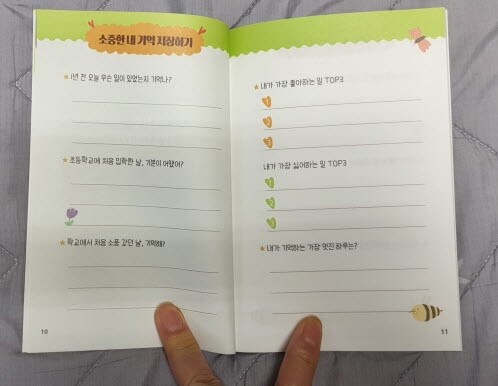 소중한 내 기억 저장하기
★ 1년 전 오늘 무슨 일이 있었는지 기억나?
★ 초등학교에 처음 입학한 날, 기분이 어땠어?
★ 학교에서 처음 소풍 갔던 날, 기억해?
10
★ 내가 가장 좋아하는 말 TOP3
1
2
3
내가 가장 싫어하는 말 TOP3
1
2
3
★ 내가 기억하는 가장 멋진 하루는?
11